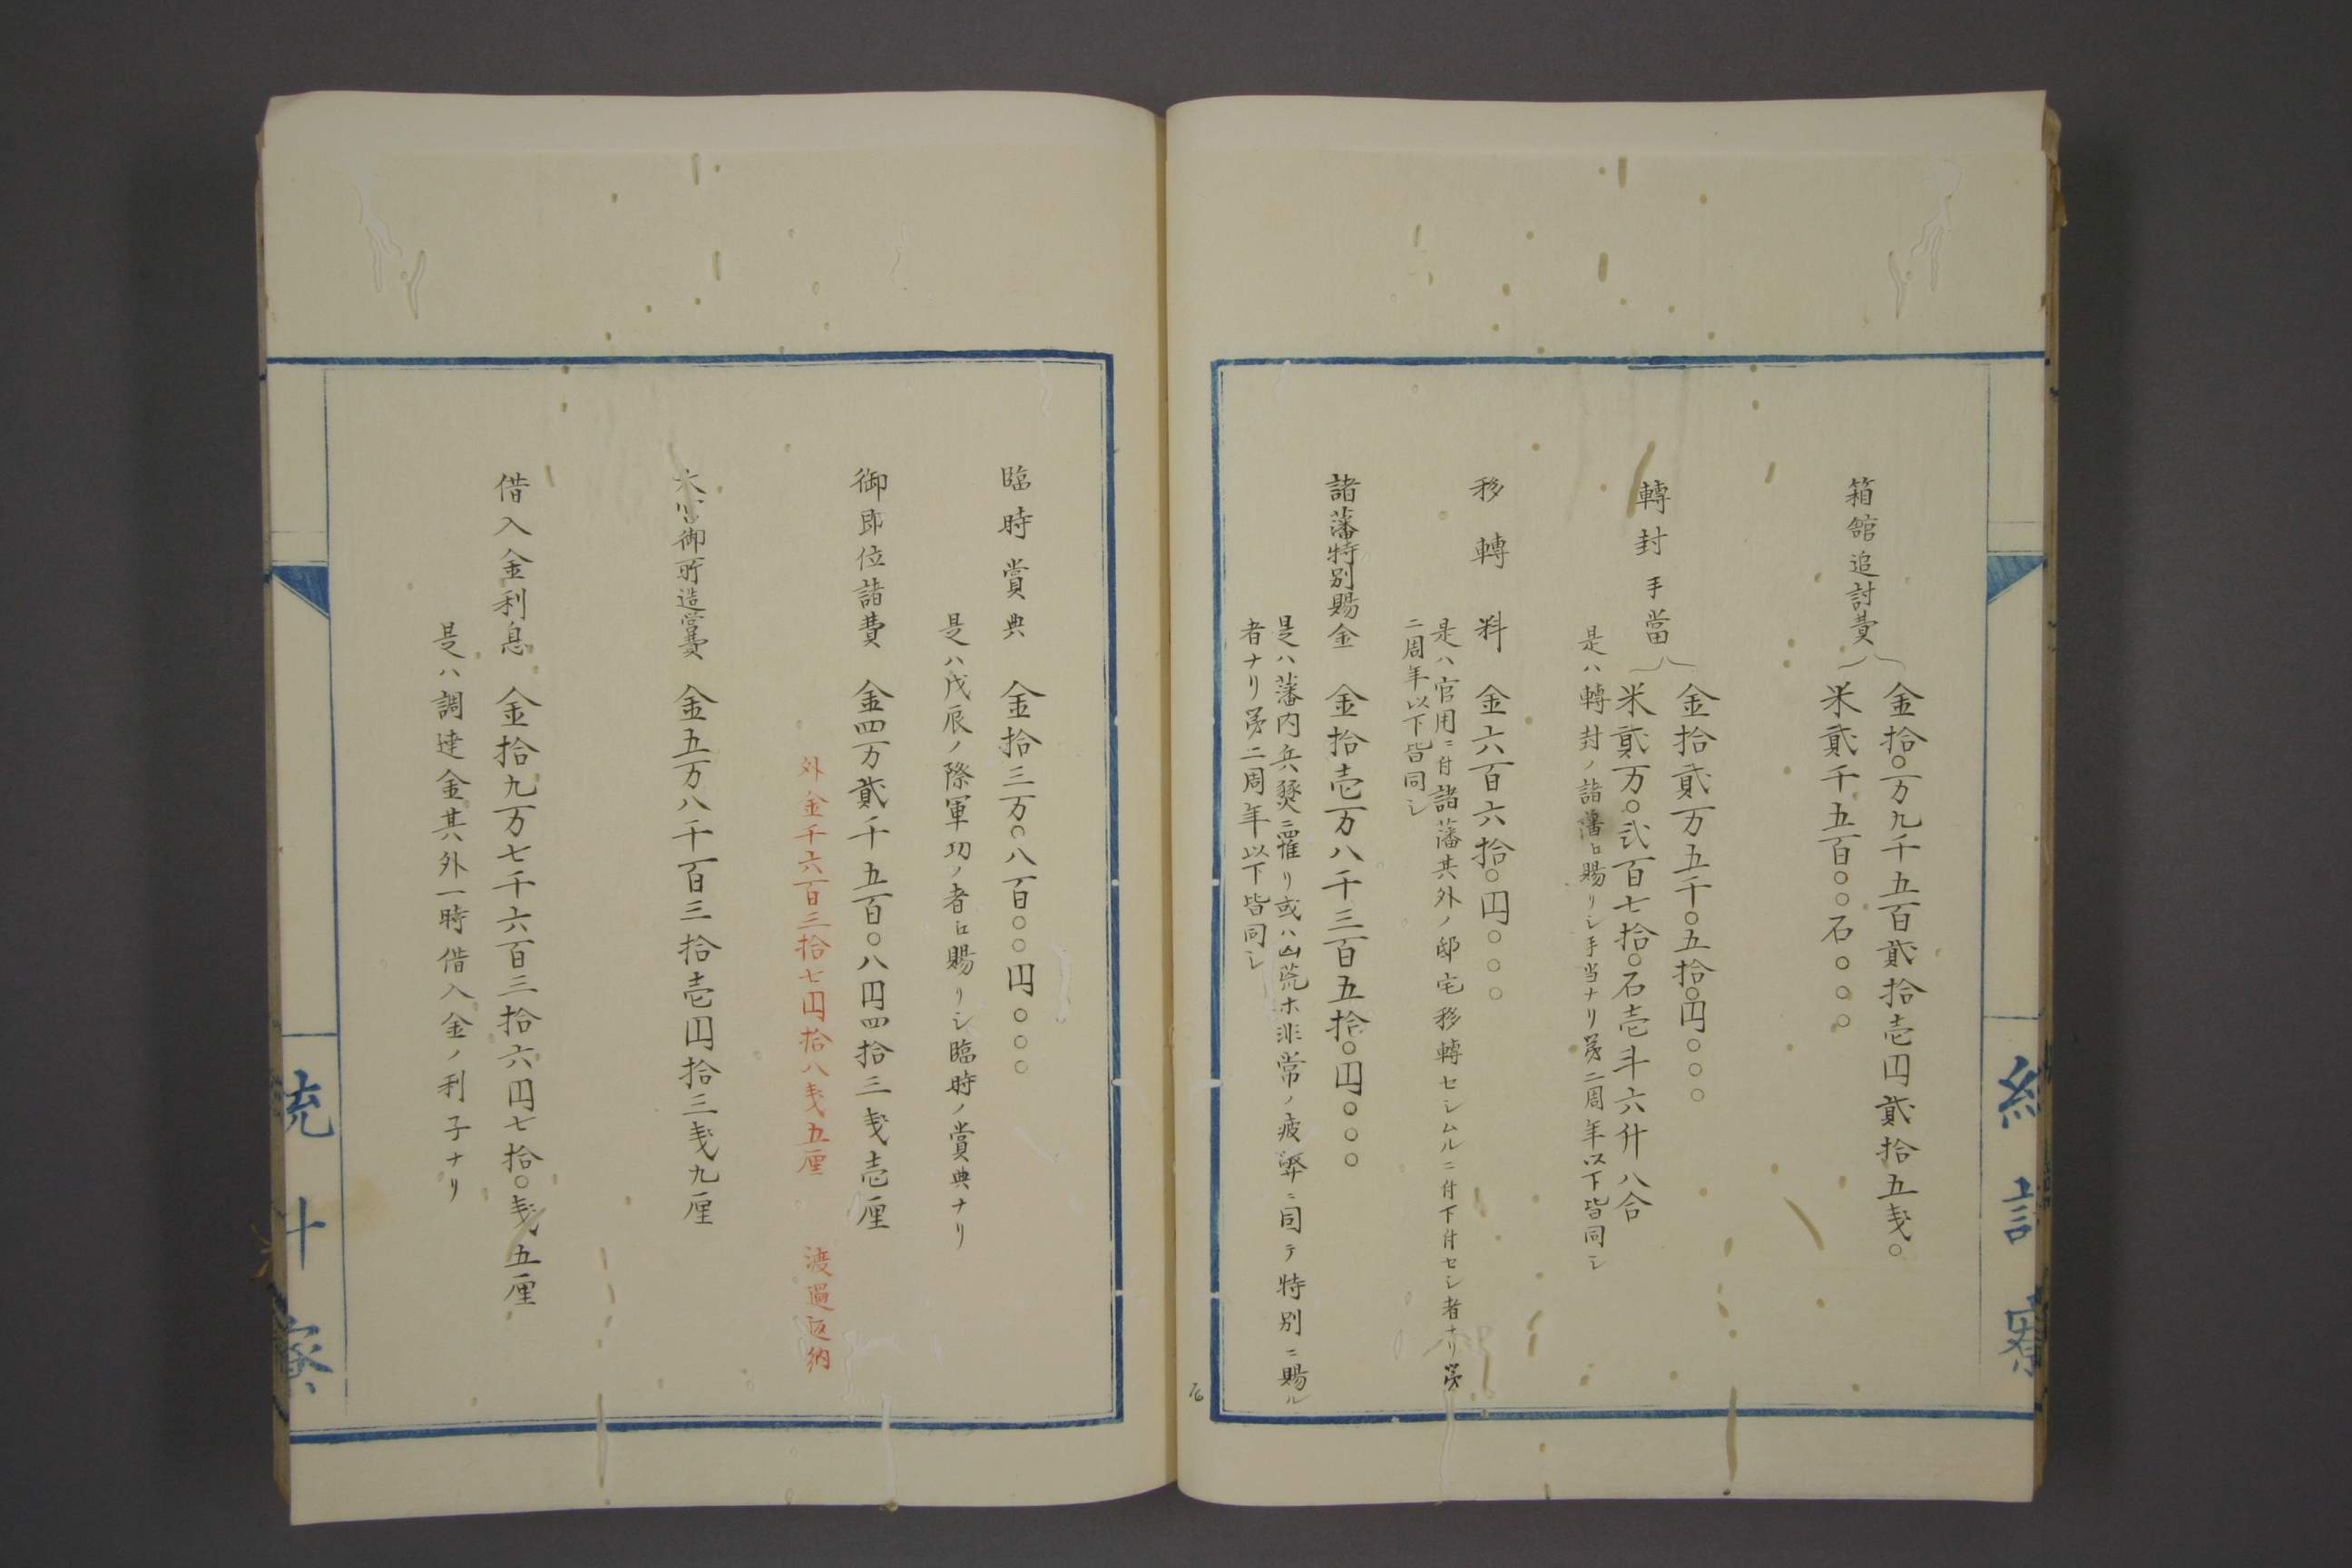 箱館追討費
金拾〇万九千五百貳拾壱円貳拾五戔〇
米貳千五百〇〇石〇〇〇
轉封手當
金拾貳万五千〇五拾〇円〇〇〇
米貳万〇弐百七拾〇石壱斗六升八合
是ハ轉封ノ諸藩ヱ賜リシ手当ナリ第二周年以下皆同シ
移轉料 金六百六拾〇円〇〇〇
是ハ官用ニ付諸藩其外ノ邸宅移轉セシムルニ付下付セシ者ナリ第
二周年以下皆同シ
諸藩特別賜金 金拾壱万八千三百五拾〇円〇〇〇
是ハ藩内兵燹ニ罹リ或ハ凶荒ホ非常ノ疲弊ニ因テ特別ニ賜ル
者ナリ第二周年以下皆同シ
16
統計寮
臨時賞典 金拾三万〇八百〇〇円〇〇〇
是ハ戊辰ノ際軍功ノ者ヱ賜リシ臨時ノ賞典ナリ
御即位諸費 金四万貳千五百〇八円四拾三戔壱厘
外金千六百三拾七円拾八戔五厘 渡過返納
御所造営費 金五万八千百三拾壱円拾三戔九厘
借入金利息 金拾九万七千六百三拾六円七拾〇戔五厘
是ハ調達金其外一時借入金ノ利子ナリ
統計寮